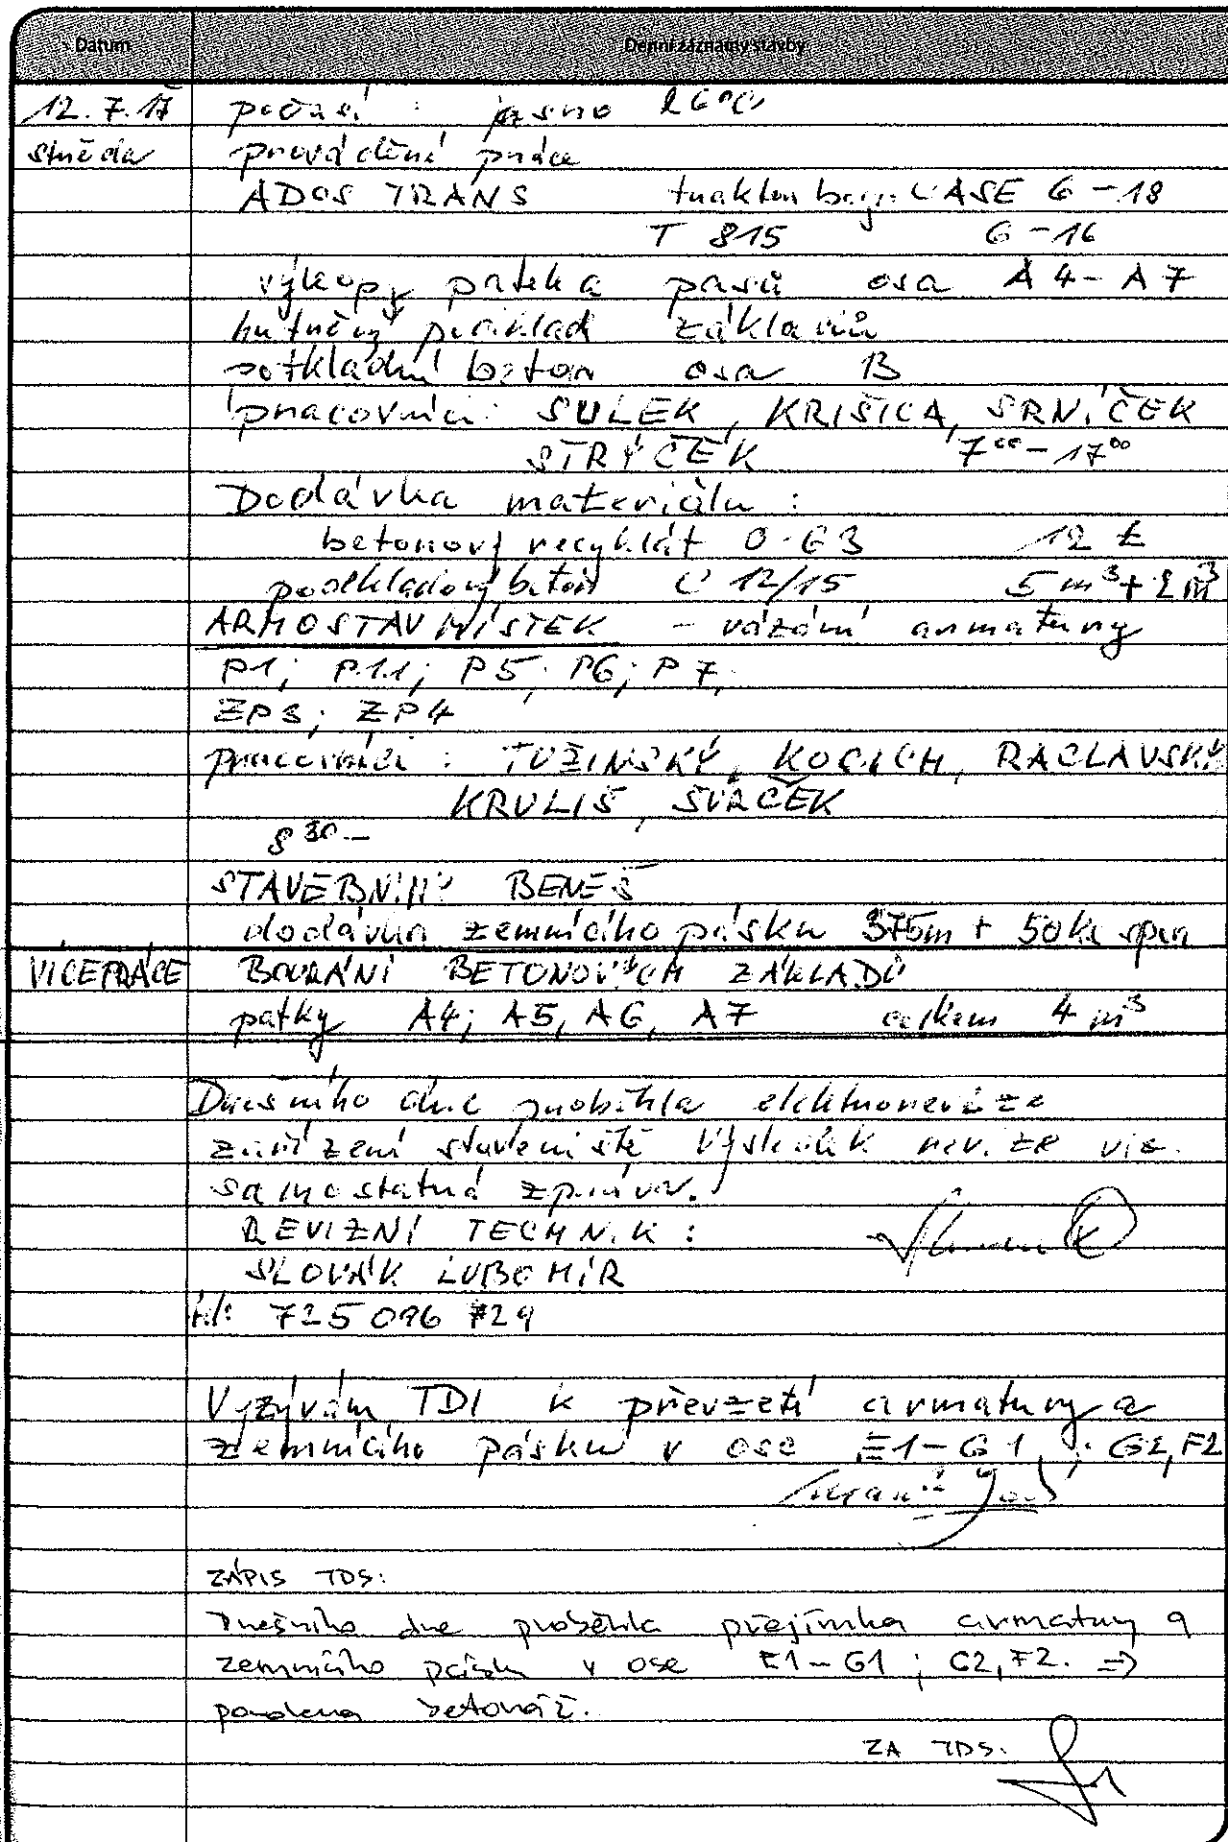 Datum Denní záznamy stavby
12.7.17 počasí : jasno 26°C
středa prováděné práce
ADOS TRANS traktor bagr CASE 6-18
T 815 6-16
výkopy patek a pasů osa A4-A7
hutněný podklad základů
potkladní beton osa B
pracovníci: SULEK, KRIŠICA, SRNÍČEK
STRÝČEK 7⁰⁰-17⁰⁰
Dodávka materiálu :
betonový recyklát 0-63 12 t
podkladový beton C 12/15 5 m³ + 2 m³
ARMOSTAV MÍSTEK - vázání armatury
P1; P1.1; P5; P6; P7;
ZP3; ZP4
pracovníci : TUŽINSKÝ, KOCICH, RACLAVSKÝ
KRULIŠ, SVRČEK
8³⁰-
STAVEBNINY BENEŠ
dodávka zemnícího pásku 375m + 50 ks spon
VÍCEPRÁCE BOURÁNÍ BETONOVÝCH ZÁKLADŮ
patky A4; A5, A6, A7 celkem 4 m³
Dnešního dne proběhla elektrorevize
zařízení staveniště Výsledek revize viz.
samostatná zpráva.
REVIZNÍ TECHNIK :
SLOVÁK LUBOMÍR
tel: 725 096 729
Vyzývám TDI k převzetí armatury a
zemnícího pásku v ose E1-G1 ; G2,F2
ZÁPIS TDS:
Dnešního dne proběhla přejímka armatury a
zemnícího pásku v ose E1-G1 ; G2,F2. ⇒
povolena betonáž.
ZA TDS: